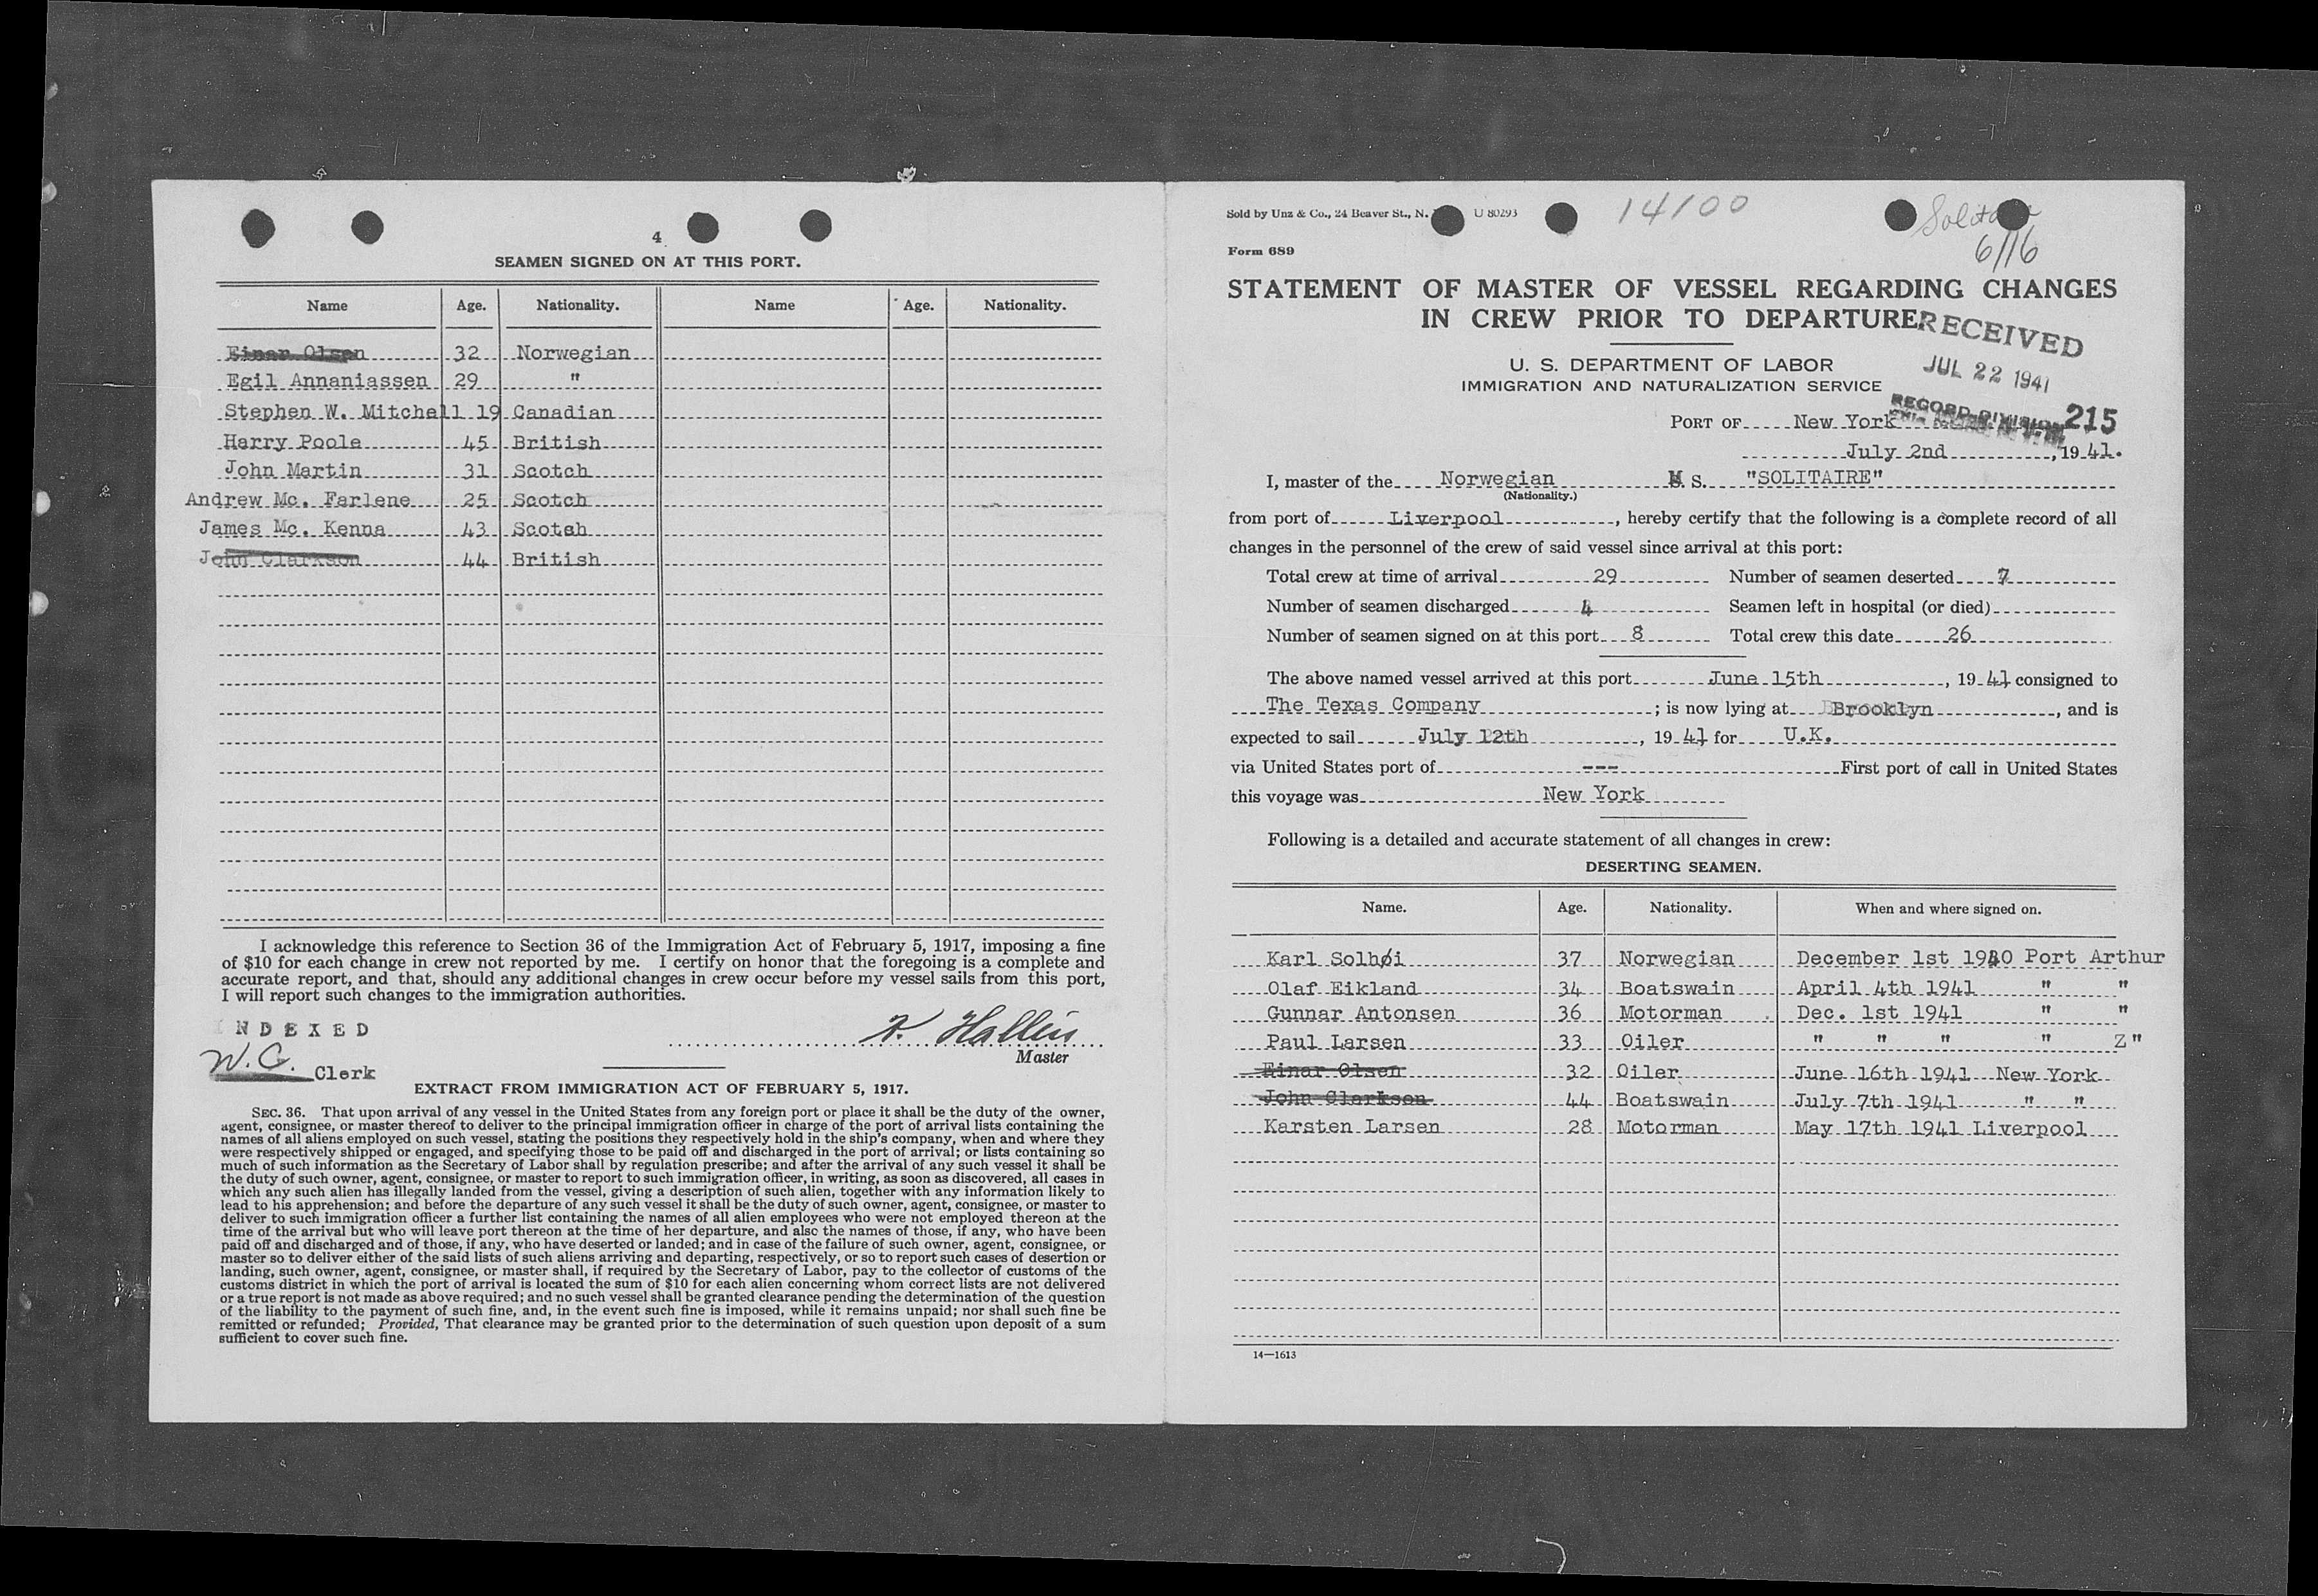 4
SEAMEN SIGNED ON AT THIS PORT.
Name Age. Nationality. Name Age. Nationality.
Einar Olsen 32 Norwegian
Egil Annaniassen 29 "
Stephen W. Mitchell 19 Canadian
Harry Poole 45 British
John Martin 31 Scotch
Andrew Mc. Farlene 25 Scotch
James Mc. Kenna 43 Scotch
John Clarkson 44 British
I acknowledge this reference to Section 36 of the Immigration Act of February 5, 1917, imposing a fine
of $10 for each change in crew not reported by me. I certify on honor that the foregoing is a complete and
accurate report, and that, should any additional changes in crew occur before my vessel sails from this port,
I will report such changes to the immigration authorities.
INDEXED
W.C. Clerk
K. Hallin
Master
EXTRACT FROM IMMIGRATION ACT OF FEBRUARY 5, 1917.
SEC. 36. That upon arrival of any vessel in the United States from any foreign port or place it shall be the duty of the owner,
agent, consignee, or master thereof to deliver to the principal immigration officer in charge of the port of arrival lists containing the
names of all aliens employed on such vessel, stating the positions they respectively hold in the ship's company, when and where they
were respectively shipped or engaged, and specifying those to be paid off and discharged in the port of arrival; or lists containing so
much of such information as the Secretary of Labor shall by regulation prescribe; and after the arrival of any such vessel it shall be
the duty of such owner, agent, consignee, or master to report to such immigration officer, in writing, as soon as discovered, all cases in
which any such alien has illegally landed from the vessel, giving a description of such alien, together with any information likely to
lead to his apprehension; and before the departure of any such vessel it shall be the duty of such owner, agent, consignee, or master to
deliver to such immigration officer a further list containing the names of all alien employees who were not employed thereon at the
time of the arrival but who will leave port thereon at the time of her departure, and also the names of those, if any, who have been
paid off and discharged and of those, if any, who have deserted or landed; and in case of the failure of such owner, agent, consignee, or
master so to deliver either of the said lists of such aliens arriving and departing, respectively, or so to report such cases of desertion or
landing, such owner, agent, consignee, or master shall, if required by the Secretary of Labor, pay to the collector of customs of the
customs district in which the port of arrival is located the sum of $10 for each alien concerning whom correct lists are not delivered
or a true report is not made as above required; and no such vessel shall be granted clearance pending the determination of the question
of the liability to the payment of such fine, and, in the event such fine is imposed, while it remains unpaid; nor shall such fine be
remitted or refunded; Provided, That clearance may be granted prior to the determination of such question upon deposit of a sum
sufficient to cover such fine.
Sold by Unz & Co., 24 Beaver St., N. U 80293
14/00
Solitaire
6/16
Form 689
STATEMENT OF MASTER OF VESSEL REGARDING CHANGES
IN CREW PRIOR TO DEPARTURE
RECEIVED
JUL 22 1941
RECORD DIVISION
215
U. S. DEPARTMENT OF LABOR
IMMIGRATION AND NATURALIZATION SERVICE
PORT OF New York
July 2nd, 1941.
I, master of the Norwegian M. S. "SOLITAIRE"
(Nationality.)
from port of Liverpool, hereby certify that the following is a complete record of all
changes in the personnel of the crew of said vessel since arrival at this port:
Total crew at time of arrival 29 Number of seamen deserted 7
Number of seamen discharged 4 Seamen left in hospital (or died)
Number of seamen signed on at this port 8 Total crew this date 26
The above named vessel arrived at this port June 15th, 1941 consigned to
The Texas Company; is now lying at Brooklyn, and is
expected to sail July 12th, 1941 for U.K.
via United States port of --- First port of call in United States
this voyage was New York
Following is a detailed and accurate statement of all changes in crew:
DESERTING SEAMEN.
Name. Age. Nationality. When and where signed on.
Karl Solbøi 37 Norwegian December 1st 1940 Port Arthur
Olaf Eikland 34 Boatswain April 4th 1941 " "
Gunnar Antonsen 36 Motorman Dec. 1st 1941 " "
Paul Larsen 33 Oiler " " " " Z"
Einar Olsen 32 Oiler June 16th 1941 New York
John Clarkson 44 Boatswain July 7th 1941 " "
Karsten Larsen 28 Motorman May 17th 1941 Liverpool
14—1613